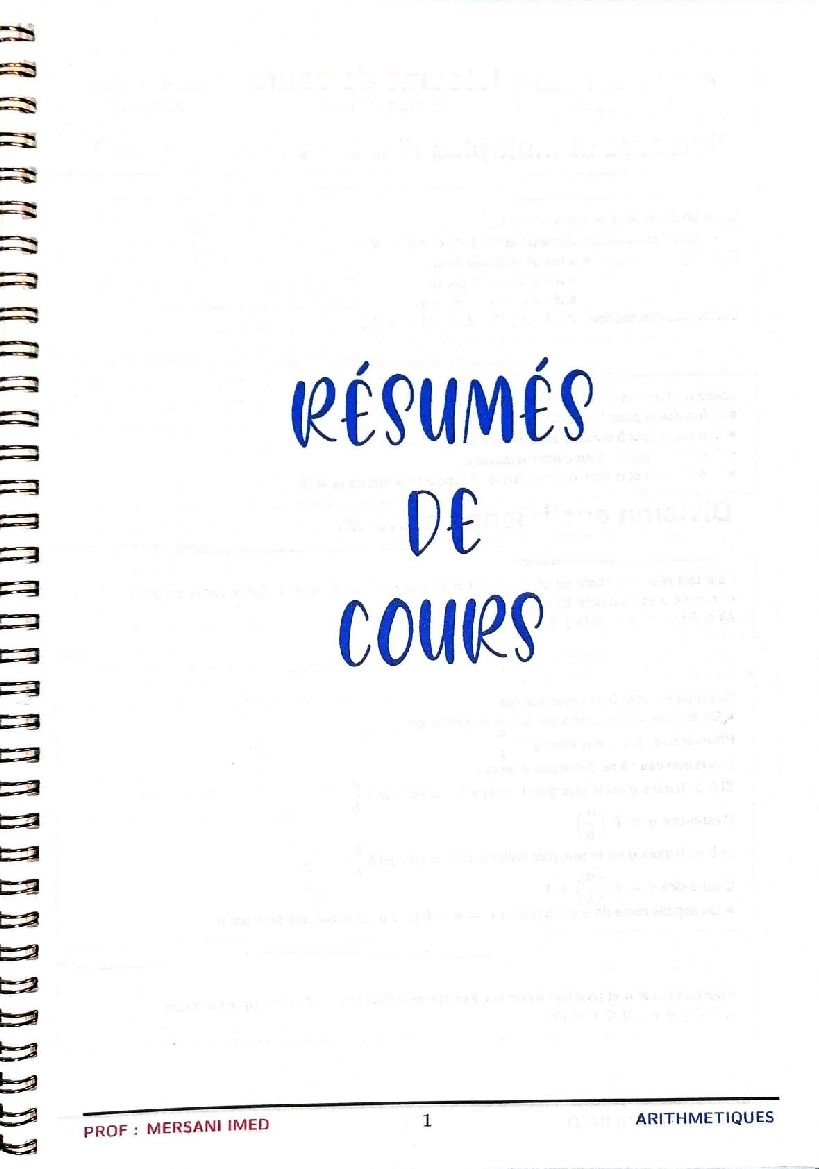 RÉSUMÉS
DE
COURS
PROF : MERSANI IMED
1
ARITHMETIQUES